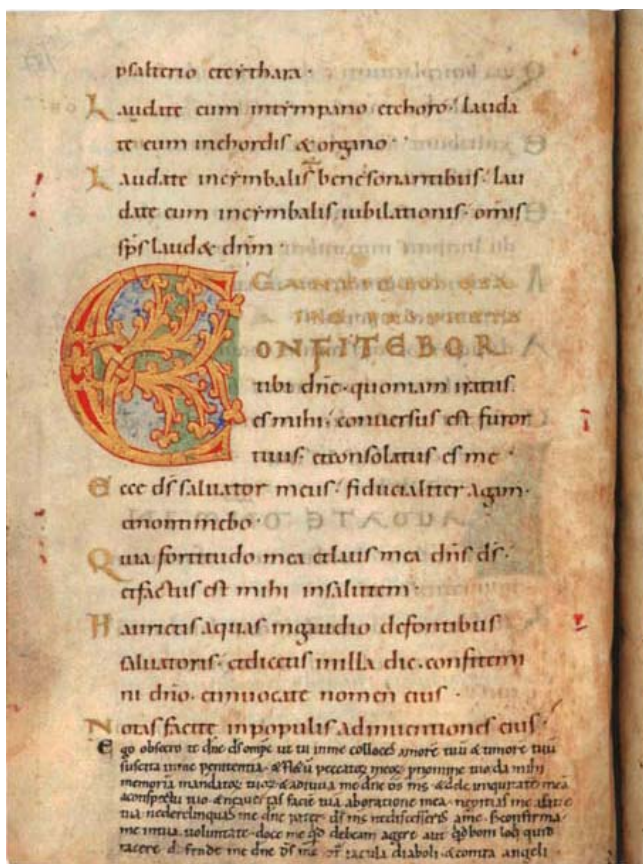 psalterio et cythara·
Laudate eum in tympano et choro· lauda
te eum in chordis & organo·
Laudate in cymbalis bene sonantibus· lau
date eum in cymbalis iubilationis· omis
sps laud& dnm·
CANTICUM
CONFITEBOR
tibi dne· quoniam iratus
es mihi· conversus est furor
tuus· et consolatus es me·
Ecce ds salvator meus· fiducialiter agam·
et non timebo·
Quia fortitudo mea et laus mea dns ds·
et factus est mihi in salutem·
Haurietis aquas in gaudio de fontibus
salvatoris· et dicetis in illa die· confitemi
ni dno· et invocate nomen eius·
Notas facite in populis adinventiones eius·
Ego obsecro te dne ds omps ut tu in me colloces amore tuu & timore tuu
suscita in me penitentia· peccatoz meoz p nomine tuo da mihi
memoria mandatoz tuoz & adiuva me dne ds ms & dele iniquitate mea
a conspectu tuo· & ne avertas facie tua ab oratione mea·
ne derelinquas me dne pater· ds ms ne discesseris a me· & confirma
me in tua voluntate· doce me qd debeam agere aut qd bom loqui
tacere me dne ds ms diaboli & comita angeli